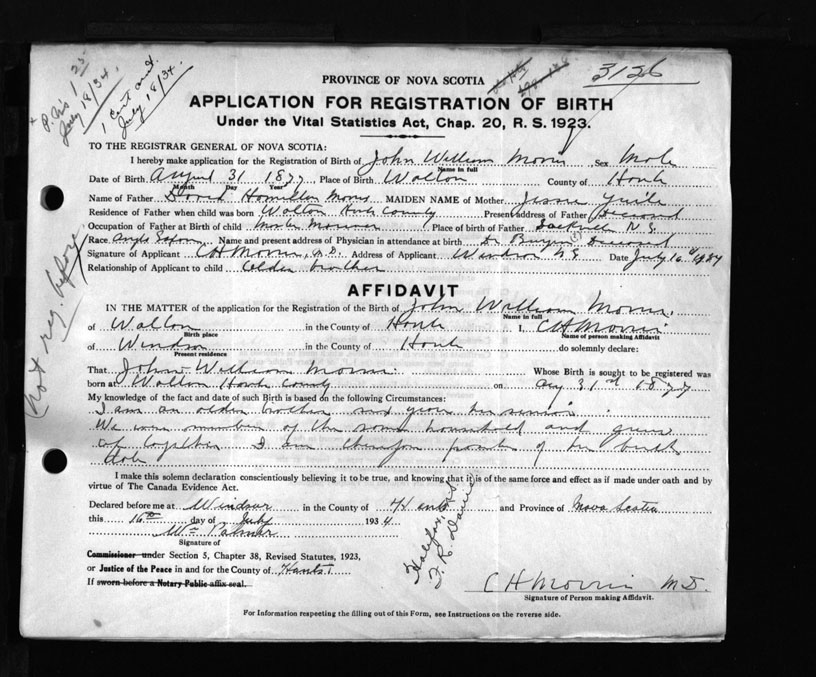 July 18/34.
1 Cert and.
July 18/34.
3126
PROVINCE OF NOVA SCOTIA
APPLICATION FOR REGISTRATION OF BIRTH
Under the Vital Statistics Act, Chap. 20, R. S. 1923.
TO THE REGISTRAR GENERAL OF NOVA SCOTIA:
I hereby make application for the Registration of Birth of John William Morris Sex Male
Name in full
Date of Birth August 31 1877 Place of Birth Walton County of Hants
Month Day Year
Name of Father Hamilton Morris MAIDEN NAME of Mother Jessie
Residence of Father when child was born Walton Hants County Present address of Father Deceased
Occupation of Father at Birth of child Master Mariner Place of birth of Father Sackville N.S.
Race Anglo Saxon Name and present address of Physician in attendance at birth Dr Deceased
Signature of Applicant C H Morris, M.D. Address of Applicant Windsor N.S. Date July 16th 1934
Relationship of Applicant to child Older brother
(not reg. before)
AFFIDAVIT
IN THE MATTER of the application for the Registration of the Birth of John William Morris
Name in full
of Walton in the County of Hants I, C H Morris
Birth place Name of person making Affidavit
of Windsor in the County of Hants do solemnly declare:
Present residence
That John William Morris Whose Birth is sought to be registered was
born at Walton Hants County on Aug 31st 1877
My knowledge of the fact and date of such Birth is based on the following Circumstances:
I am an older brother years his senior.
We were members of the same household and grew
up together I am therefore of his birth
date
I make this solemn declaration conscientiously believing it to be true, and knowing that it is of the same force and effect as if made under oath and by
virtue of The Canada Evidence Act.
Declared before me at Windsor in the County of Hants and Province of Nova Scotia
this 16th day of July 1934
Wm Palmer
Signature of
Commissioner under Section 5, Chapter 38, Revised Statutes, 1923,
or Justice of the Peace in and for the County of Hants.
If sworn before a Notary Public affix seal.
Halifax, N.S.
F. R. Davis
C H Morris M.D.
Signature of Person making Affidavit.
For Information respecting the filling out of this Form, see Instructions on the reverse side.